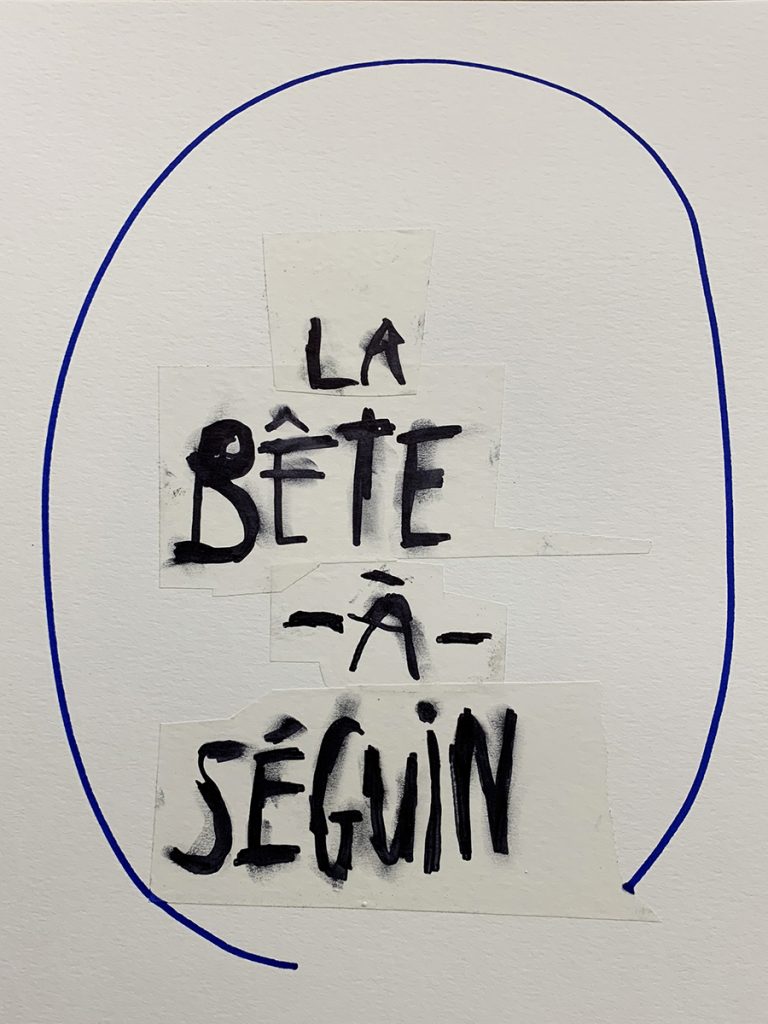 LA
BÊTE
-À-
SÉGUiN